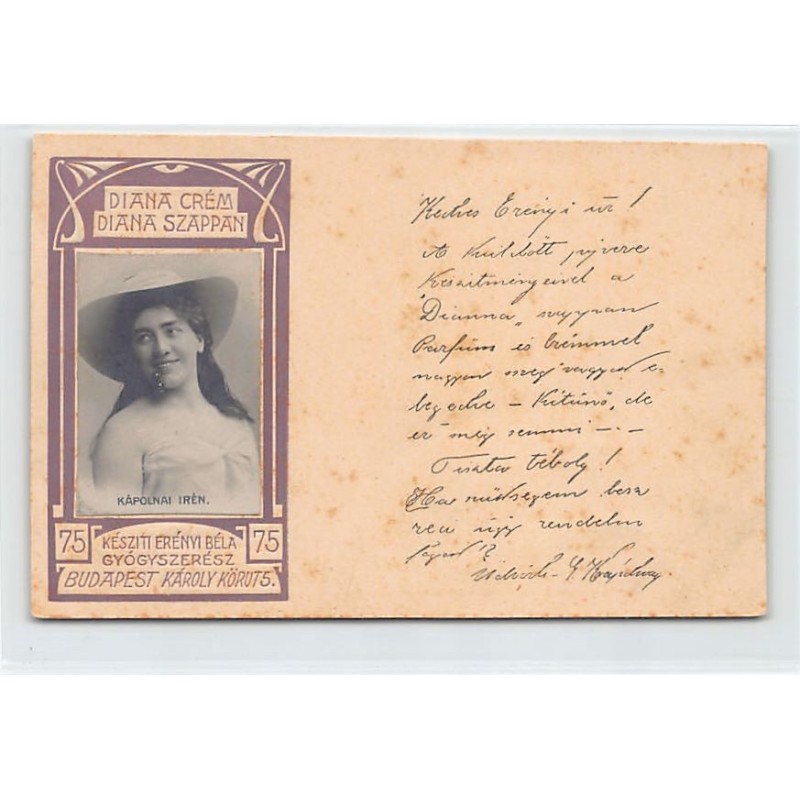 DIANA CRÉM
DIANA SZAPPAN
KÁPOLNAI IRÉN.
75
KÉSZITI ERÉNYI BÉLA
GYÓGYSZERÉSZ
75
BUDAPEST KÁROLY KÖRUT 5.
Kedves Erényi úr!
A küldött
Készitményeivel a
"Dianna" szappan
Parfüm és Crémmel
nagyon meg vagyok e-
légedve – Kitünő, de
ez még semmi – –
Tiszta téboly!
Ha
úgy rendelem